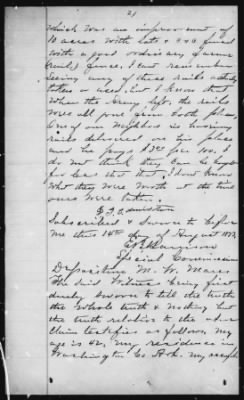 21
which was an improvement of
10 acres with lots & was fenced
with a good ordinary farm
rail fence, I cant remember
seeing any of these rails actually
taken or used, but I know that
when the Army left, the rails
were all gone from both places,
One of our neighbors is having
rails delivered on his place
and he pays 
do not think they can be bought
for less than that. I dont know
what they were worth at the time
ours were taken.
Subscribed & Sworn to before
me this 14th day of August 187
Special Commissioner
Deposition M. W. Mares
The said Witness being first
duly Sworn to tell the truth
the whole truth & nothing but
the truth relative to the above
Claim testifies as follows, My
age is 42, my residence in
Washington Co Ark. My